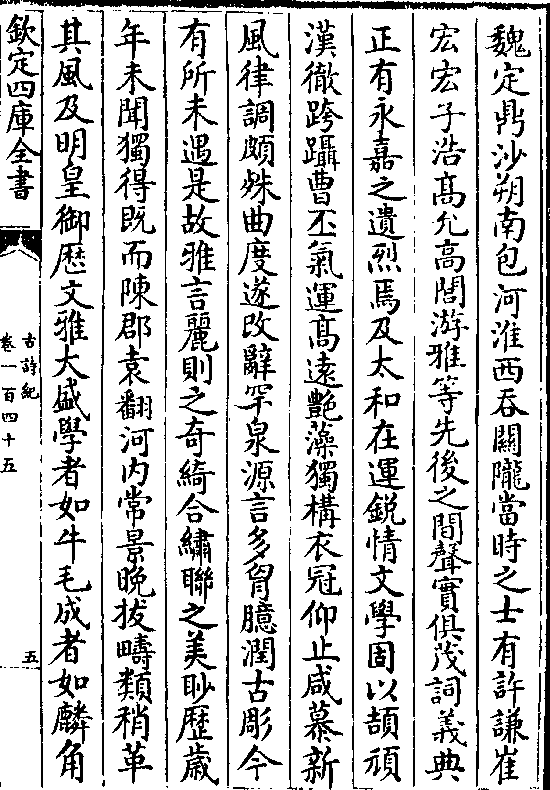 魏定鼎沙朔南包河淮西吞關隴當時之士有許謙崔
宏宏子浩髙允高閭游雅等先後之間聲實俱茂詞義典
正有永嘉之遺烈焉及太和在運鋭情文學固以頡頏
漢徹跨躡曹丕氣運髙逺艶藻獨構衣冠仰止咸慕新
風律調頗殊曲度遂改辭罕泉源言多胷臆潤古彫今
有所未遇是故雅言麗則之奇綺合繡聯之美眇歴歳
年未聞獨得既而陳郡袁翻河内常景晚拔疇類稍革
其風及明皇御歴文雅大盛學者如牛毛成者如麟角
欽定四庫全書
古詩紀
卷一百四十五
五